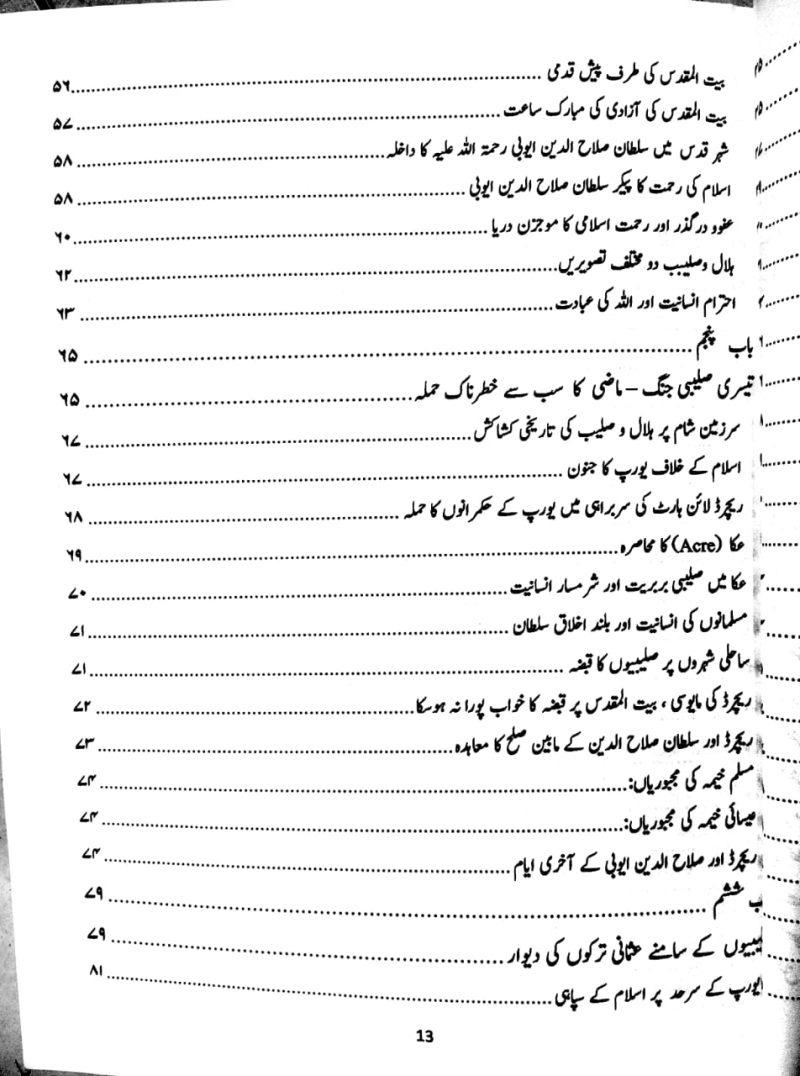 بیت المقدس کی طرف پیش قدمی ..... ۵۶
بیت المقدس کی آزادی کی مبارک ساعت ..... ۵۷
شہر قدس میں سلطان صلاح الدین ایوبی رحمۃ اللہ علیہ کا داخلہ ..... ۵۸
اسلام کی رحمت کا پیکر سلطان صلاح الدین ایوبی ..... ۵۸
عفو و درگذر اور رحمت اسلامی کا موجزن دریا ..... ۶۰
ہلال و صلیب دو مختلف تصویریں ..... ۶۲
احترام انسانیت اور اللہ کی عبادت ..... ۶۳
باب پنجم ..... ۶۵
تیسری صلیبی جنگ – ماضی کا سب سے خطرناک حملہ ..... ۶۵
سرزمین شام پر ہلال و صلیب کی تاریخی کشاکش ..... ۶۷
اسلام کے خلاف یورپ کا جنون ..... ۶۷
ریچرڈ لائن ہارٹ کی سربراہی میں یورپ کے حکمرانوں کا حملہ ..... ۶۸
عکا (Acre) کا محاصرہ ..... ۶۹
عکا میں صلیبی بربریت اور شرمسار انسانیت ..... ۷۰
مسلمانوں کی انسانیت اور بلند اخلاق سلطان ..... ۷۱
ساحلی شہروں پر صلیبیوں کا قبضہ ..... ۷۱
ریچرڈ کی مایوسی ، بیت المقدس پر قبضہ کا خواب پورا نہ ہوسکا ..... ۷۲
ریچرڈ اور سلطان صلاح الدین کے مابین صلح کا معاہدہ ..... ۷۳
مسلم خیمہ کی مجبوریاں: ..... ۷۴
عیسائی خیمہ کی مجبوریاں: ..... ۷۴
ریچرڈ اور صلاح الدین ایوبی کے آخری ایام ..... ۷۴
ب ششم ..... ۷۹
لیبیوں کے سامنے عثمانی ترکوں کی دیوار ..... ۷۹
یورپ کے سرحد پر اسلام کے سپاہی ..... ۸۱
13